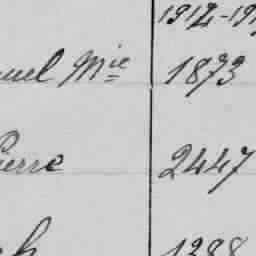 1912-191
uel Mie 1873
ierre 2447
h 1388